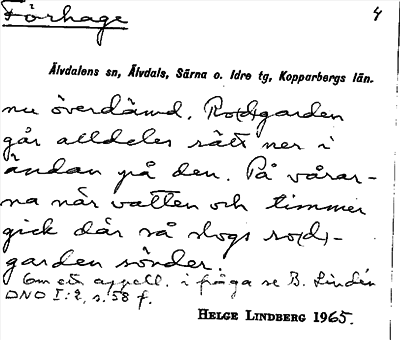 Förhage 4
Älvdalens sn, Älvdals, Särna o. Idre tg, Kopparbergs län.
nu överdämd. Ro(d)garden
går alldeles rätt ner i
ändan på den. På vårar-
na när vatten och timmer
gick där så slogs ro(d)-
garden sönder.
Om ett appell. i fråga se B. Lindén
DNO I:2, s. 58 f.
HELGE LINDBERG 1965.